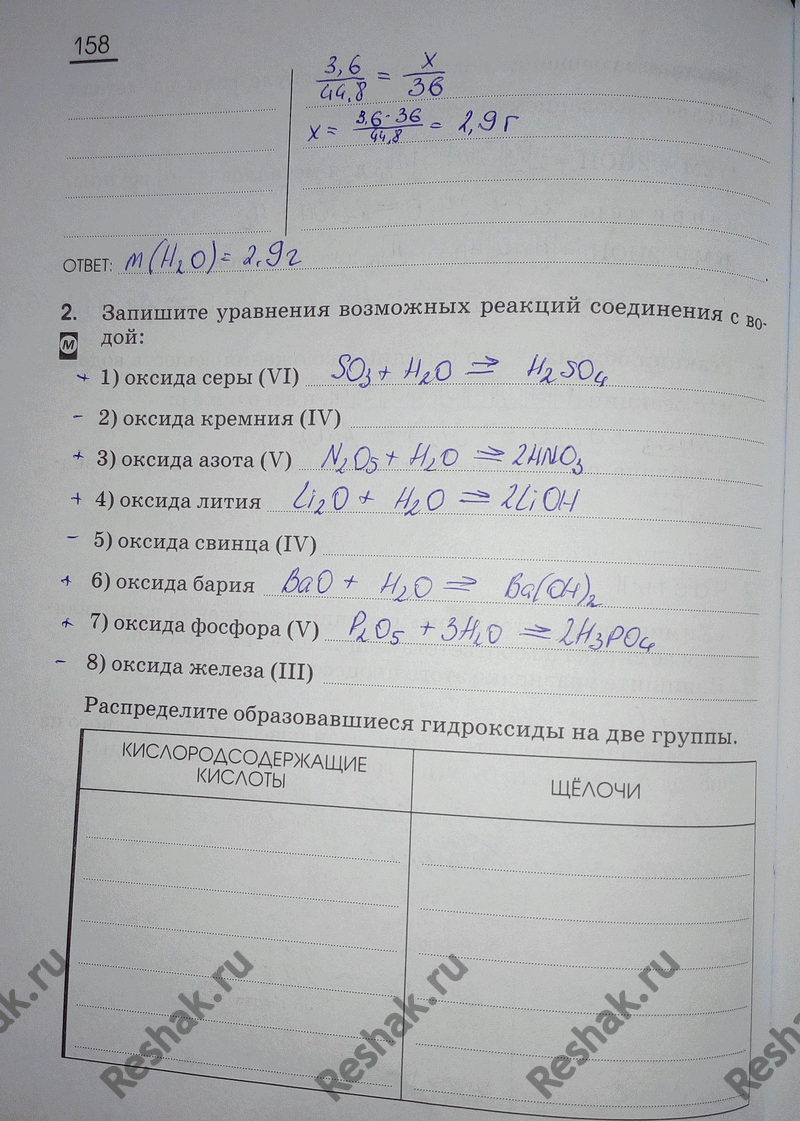 158
3,6/44,8 = x/36
x = 3,6·36/44,8 = 2,9 г
ОТВЕТ: m(H₂O) = 2,9 г
2. Запишите уравнения возможных реакций соединения с во-
М дой:
+ 1) оксида серы (VI) SO₃ + H₂O ⇒ H₂SO₄
– 2) оксида кремния (IV)
+ 3) оксида азота (V) N₂O₅ + H₂O ⇒ 2HNO₃
+ 4) оксида лития Li₂O + H₂O ⇒ 2LiOH
– 5) оксида свинца (IV)
+ 6) оксида бария BaO + H₂O ⇒ Ba(OH)₂
+ 7) оксида фосфора (V) P₂O₅ + 3H₂O ⇒ 2H₃PO₄
– 8) оксида железа (III)
Распределите образовавшиеся гидроксиды на две группы.
КИСЛОРОДСОДЕРЖАЩИЕ
КИСЛОТЫ
ЩЁЛОЧИ
ak.ru
Reshak.ru
Reshak.ru
Reshak.ru
Resh